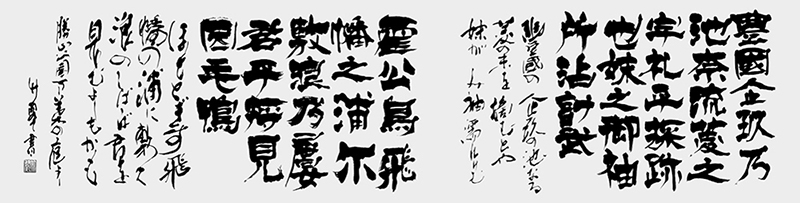 豊國企玖乃
池奈流菱之
宇礼乎採跡
也妹之御袖
所沾計武
豊国の企救の池なる
菱の末を摘むとや
妹がみ袖濡れけむ
霍公鳥飛
幡之浦尓
敷浪乃屡
君乎将見
因毛鴨
ほととぎす飛
幡の浦に敷く
浪のしばしば君を
見むよしもがも